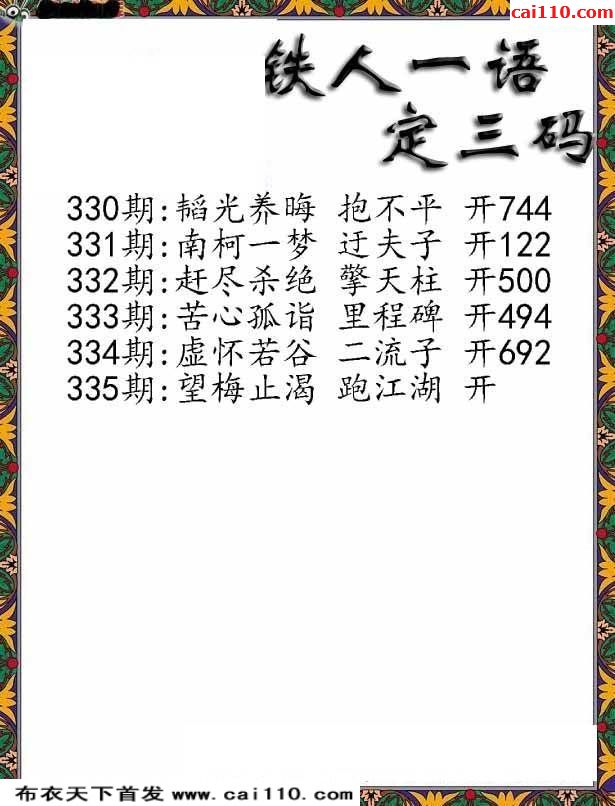 cai110.com
铁人一语
定三码
330期:韬光养晦 抱不平 开744
331期:南柯一梦 迂夫子 开122
332期:赶尽杀绝 擎天柱 开500
333期:苦心孤诣 里程碑 开494
334期:虚怀若谷 二流子 开692
335期:望梅止渴 跑江湖 开
布衣天下首发 www.cai110.com